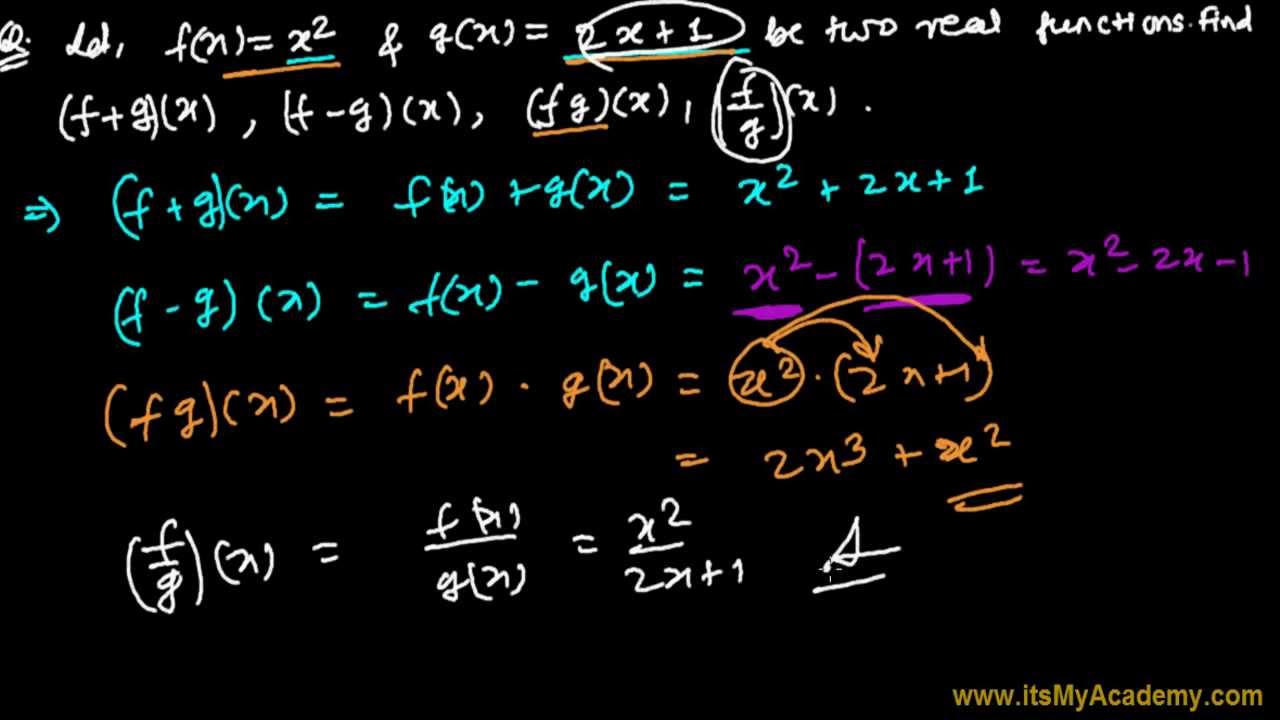 Q. Let, f(x) = x² & g(x) = 2x+1 be two real functions. Find
(f+g)(x), (f-g)(x), (fg)(x), (f/g)(x).
⇒ (f+g)(x) = f(x) + g(x) = x² + 2x + 1
(f-g)(x) = f(x) - g(x) = x² - (2x+1) = x² - 2x - 1
(fg)(x) = f(x) · g(x) = x² · (2x+1)
= 2x³ + x²
(f/g)(x) = f(x)/g(x) = x²/2x+1
www.itsMyAcademy.com